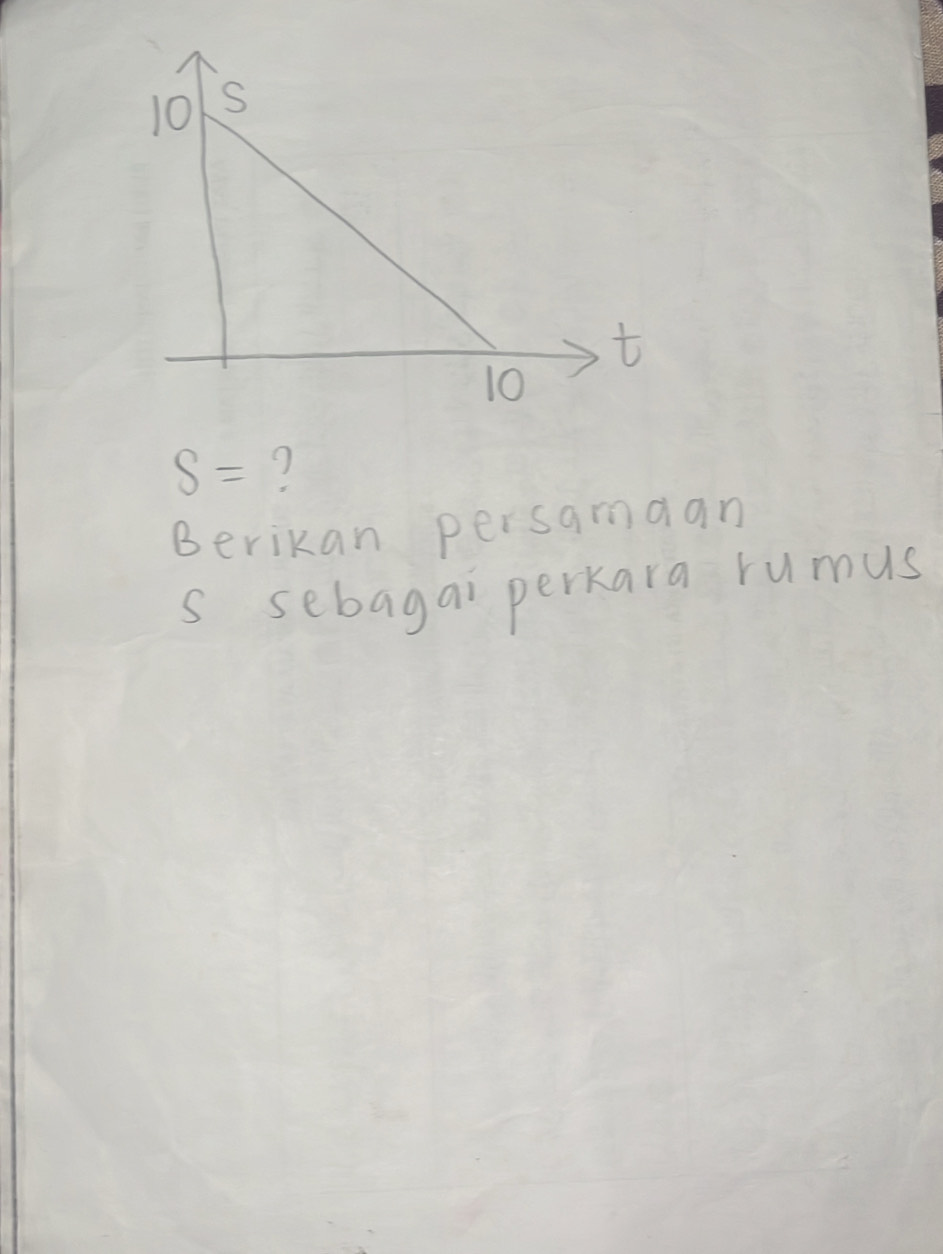 10 S
t
10
S = ?
Berikan persamaan
S sebagai perkara rumus